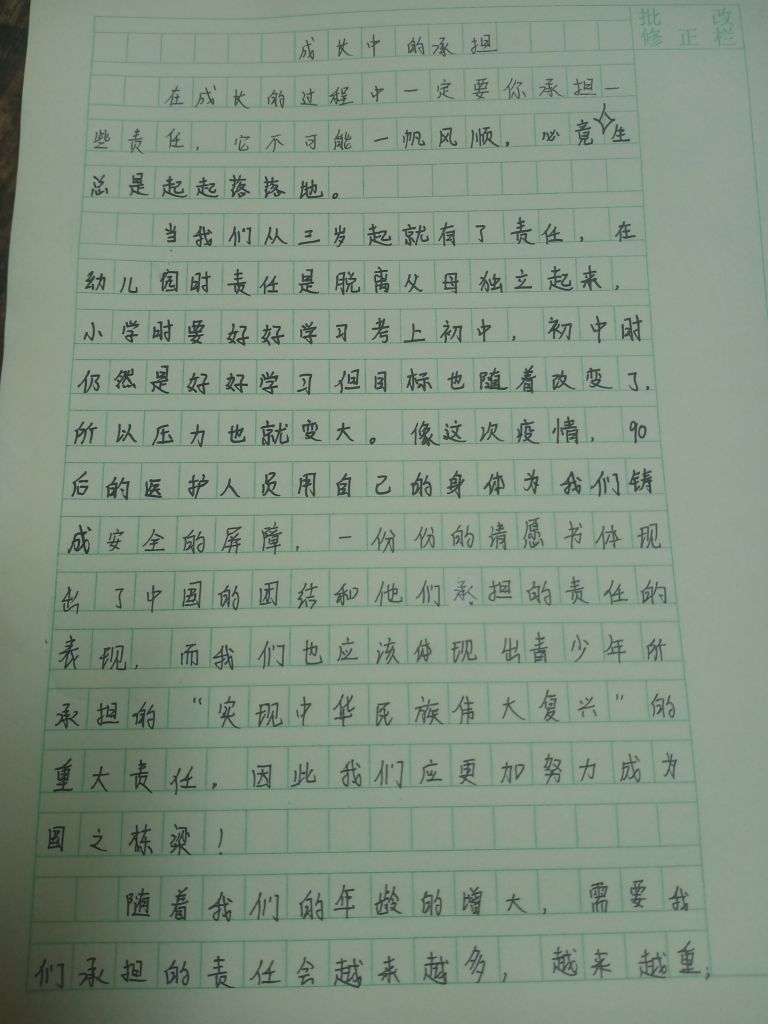 批改
修正栏
成长中的承担
在成长的过程中一定要你承担一
些责任，它不可能一帆风顺，必竟人生
总是起起落落地。
当我们从三岁起就有了责任，在
幼儿园时责任是脱离父母独立起来，
小学时要好好学习考上初中，初中时
仍然是好好学习但目标也随着改变了.
所以压力也就变大。像这次疫情，90
后的医护人员用自己的身体为我们铸
成安全的屏障，一份份的请愿书体现
出了中国的团结和他们承担的责任的
表现，而我们也应该体现出青少年所
承担的“实现中华民族伟大复兴”的
重大责任，因此我们应更加努力成为
国之栋梁！
随着我们的年龄的增大，需要我
们承担的责任会越来越多，越来越重；